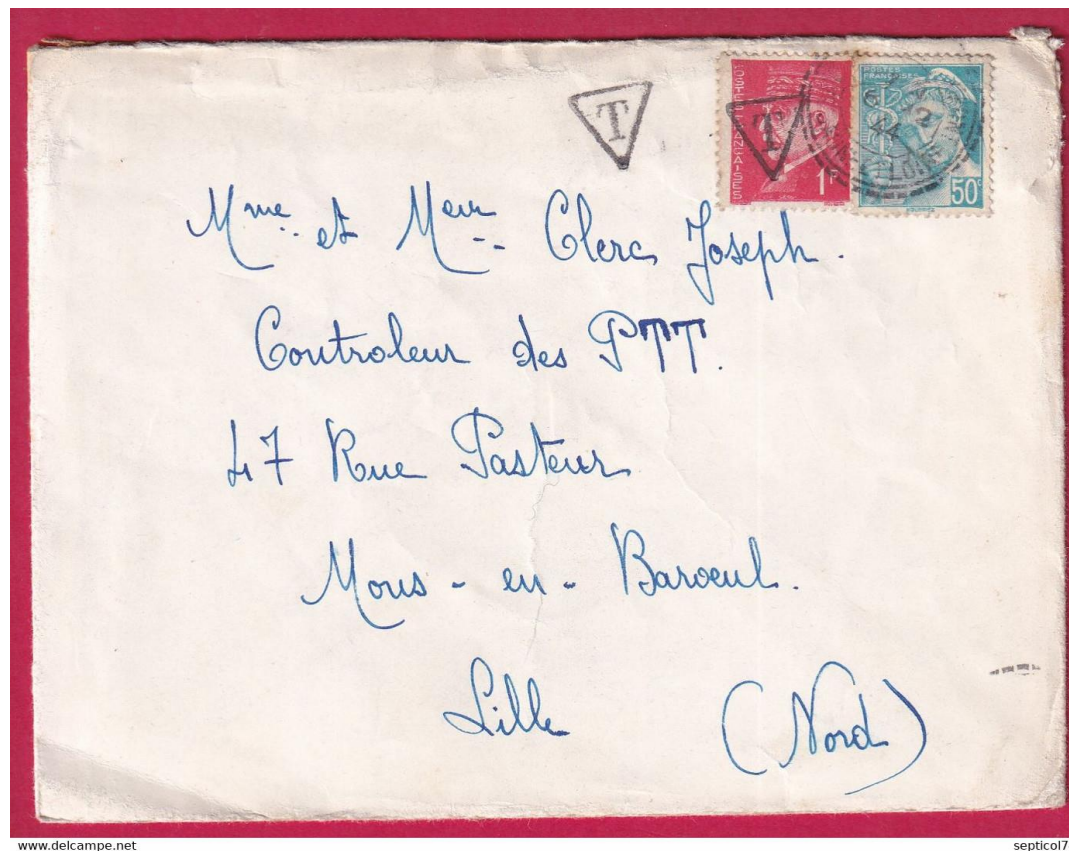 T
T
POSTES FRANÇAISES
1F
POSTES
FRANÇAISES
50c
6
2
44
Mme et Meur Clerc Joseph.
Controleur des PTT.
47 Rue Pasteur
Mons - en - Baroeul.
Lille (Nord)
septicol7